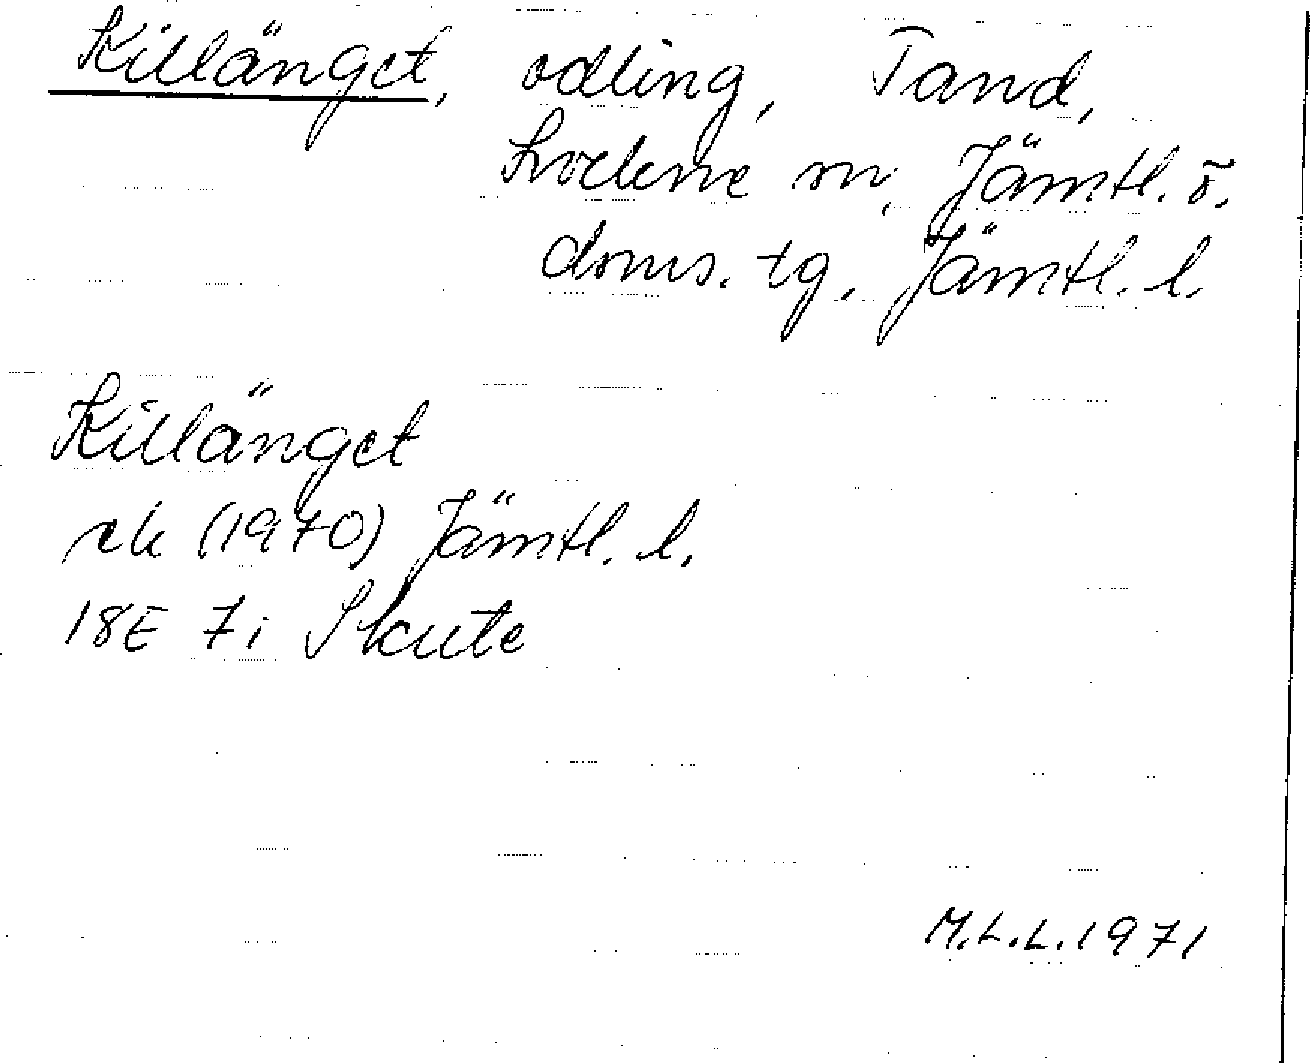 Killänget, odling, Tand,
Lockne sn, Jämtl. ö.
doms. tg, Jämtl. l.
Killänget
rk (1970) Jämtl. l.
18E 7i Skute
M.L.L. 1971